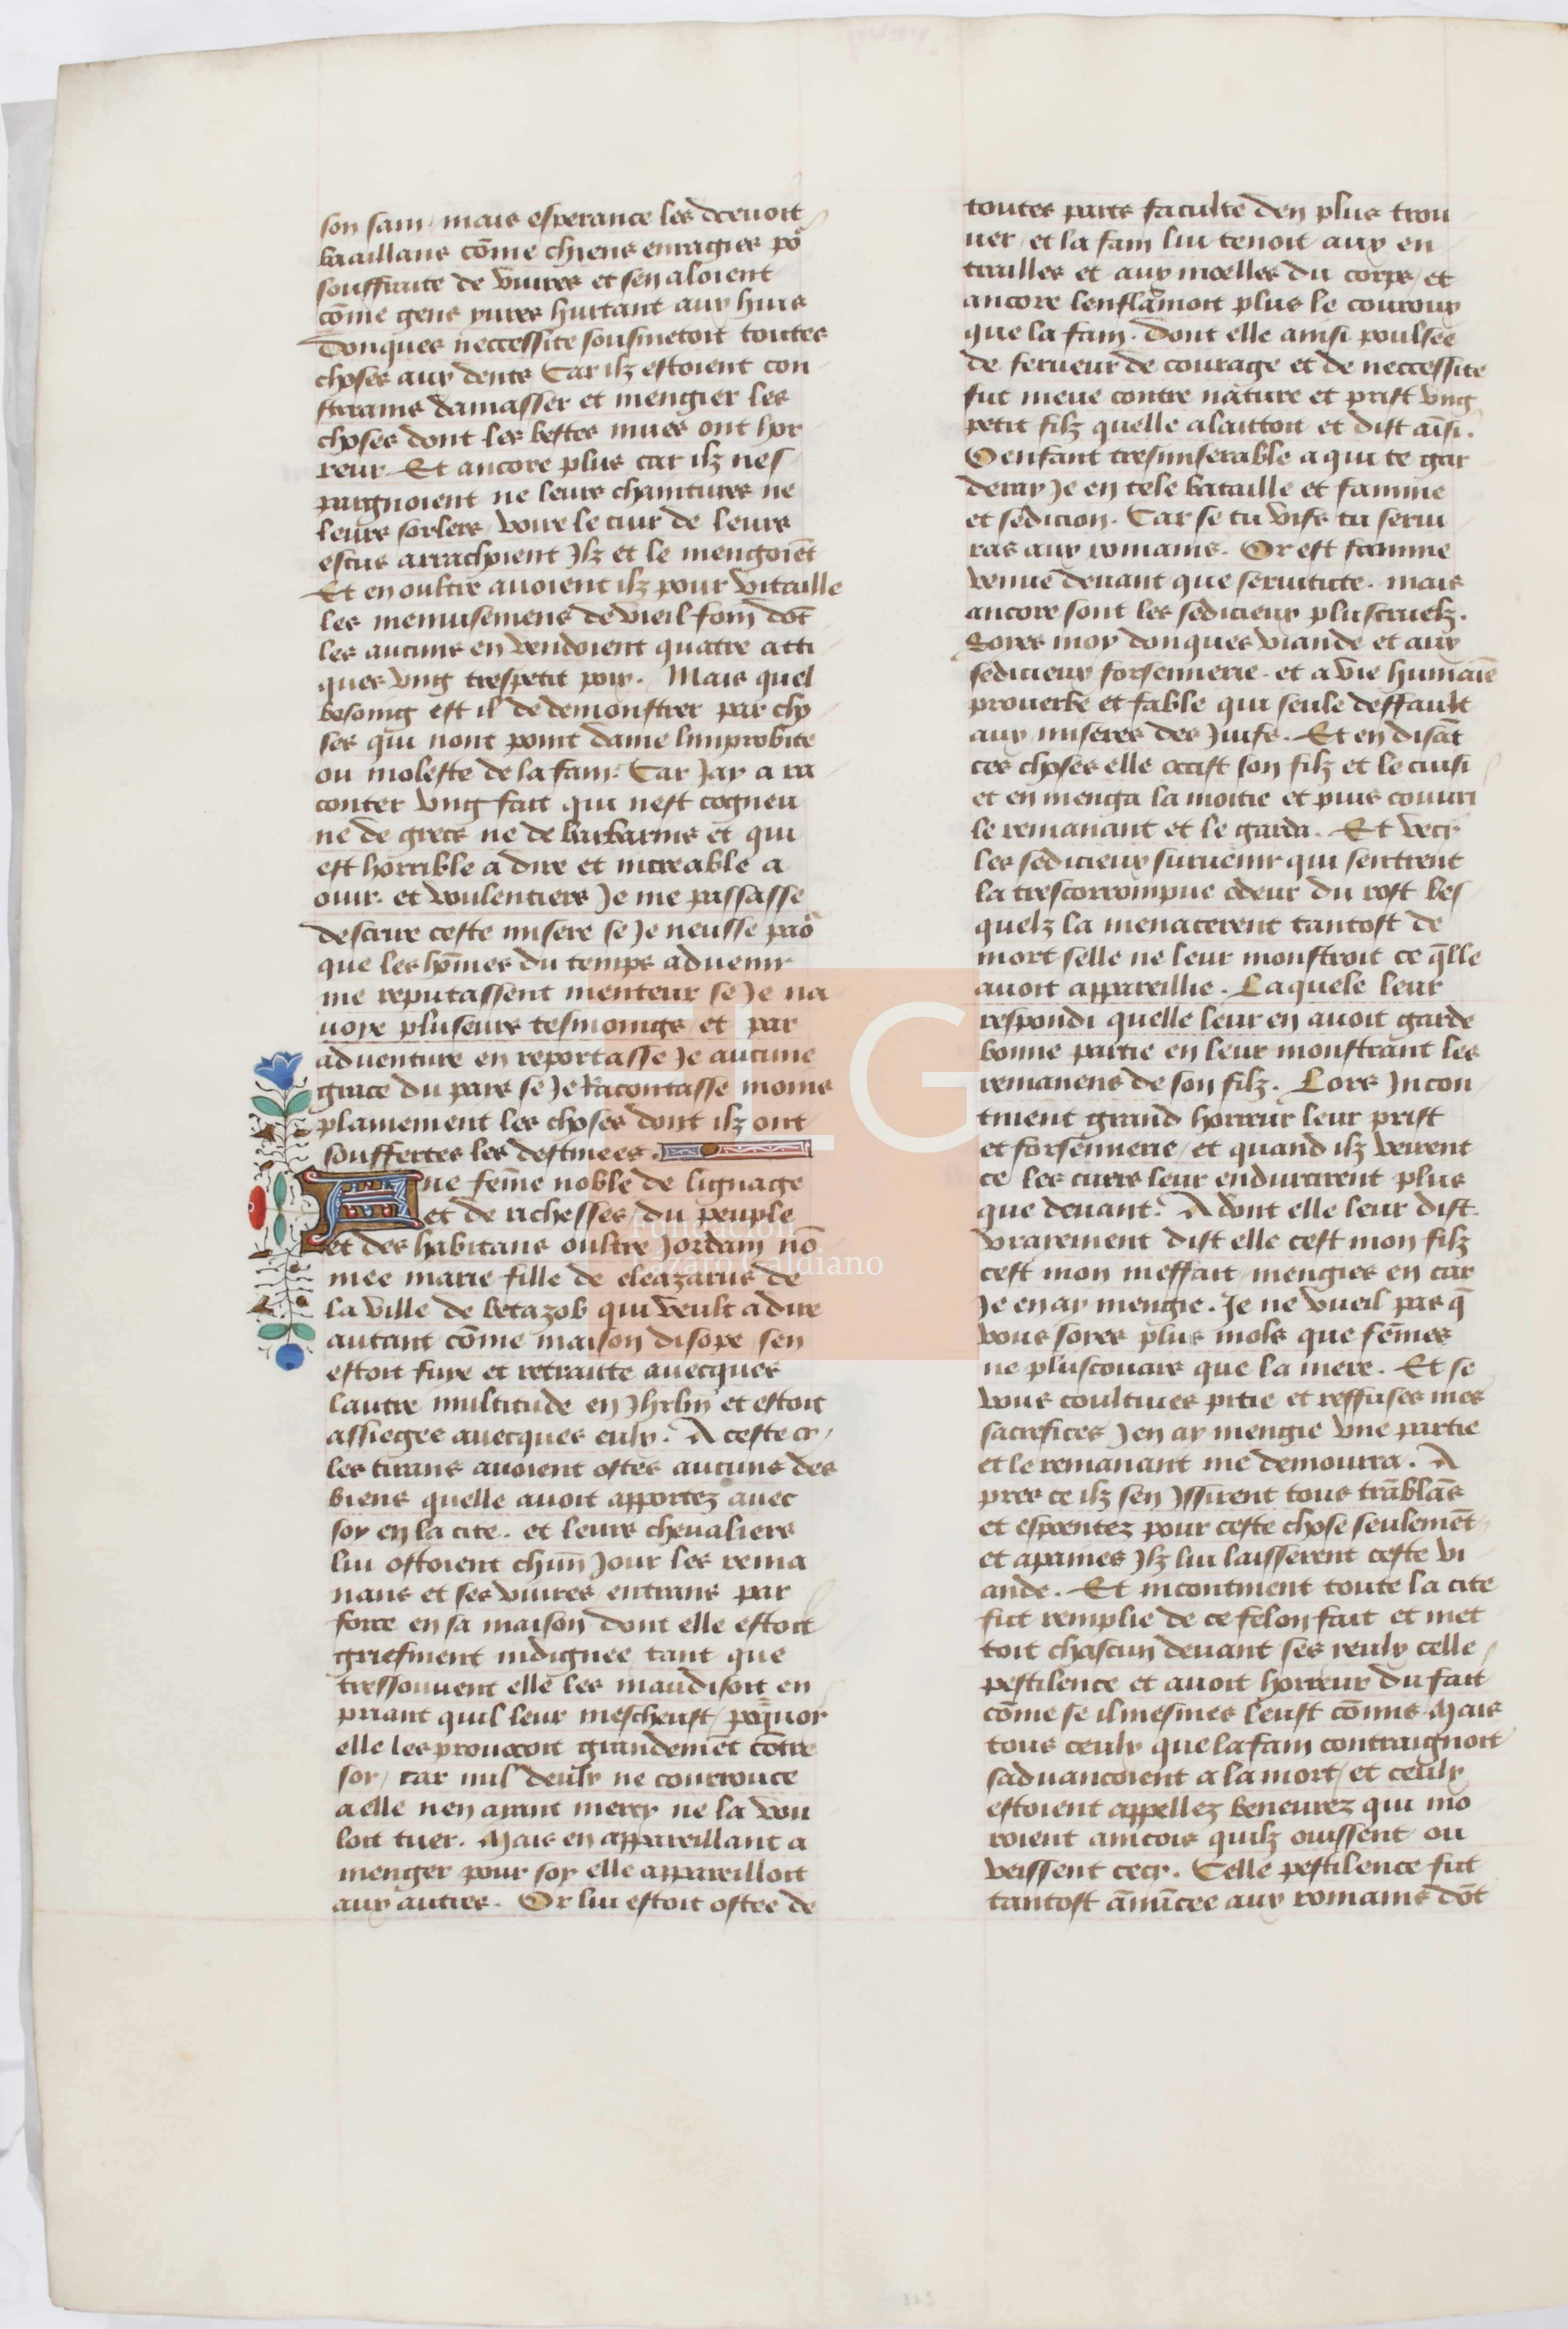 son sain / mais esperance les decuoit
baaillans cōme chiens enragies po᷑
souffraite de viures et sen aloient
cōme gens yures hurtant aux huis
Donques neccessite sousmetoit toutes
choses aux dents Car ilz estoient con
strains damasser et mengier les
choses dont les bestes mues ont hor
reur. Et ancore plus car ilz nes
pargnoient ne leurs chaintures ne
leurs sorlers / voire le cuir de leurs
escus arrachoient Ilz et le mengoiēt
Et en oultre auoient ilz pour vitaille
les memusemens de vieil foin dōt
les aucuns en vendoient quatre atti
ques vng trespetit pois. Mais quel
besoing est il de demonstrer par cho
ses qui nont point dame limprobite
ou moleste de la fam. Car Jay a ra
conter vng fait qui nest cogneu
ne de grecs ne de barbarins et qui
est horrible a dire et increable a
ouir. et voulentiers Je me passasse
descrire ceste misere se Je neusse pao᷑
que les hōmes du temps aduenir
me reputassent menteur se Je na
uoye pluseurs tesmoings / et par
aduenture en reportasse Je aucune
grace du pais se Je Racontasse moins
plainement les choses dont ilz ont
souffertes les destinees.
Une fēme noble de lignage
et de richesses du peuple
et des habitans oultre Jordain nō
mee marie fille de eleazarus de
la ville de betazob qui veult a dire
autant cōme maison disope / sen
estoit fuye et retraitte auecques
lautre multitude en Jhrlm̄ et estoit
assiegee auecques eulx. A ceste cy
les tirans auoient ostes aucuns des
biens quelle auoit apportez auec
soy en la cite. et leurs cheualiers
lui ostoient chūn Jour les rema
nans et ses viures / entrans par
force en sa maison dont elle estoit
griefment indignee tant que
tressouuent elle les maudisoit en
priant quil leur mescheust / po᷑quoy
elle les prouocoit grandemēt cōtre
soy / car nul deulx ne courrouce
a elle nen ayant mercy ne la vou
loit tuer. Mais en appareillant a
menger pour soy elle appareilloit
aux autres. Or lui estoit ostee de
toutes pars faculte den plus trou
uer / et la fam lui tenoit aux en
trailles et aux moelles du corps / et
ancore lenflāmoit plus le couroux
que la fam. Dont elle ainsi poulsee
de ferueur de courage et de neccessite
fut meue contre nature et prist vng
petit filz quelle alaittoit et dist aīsi.
O enfant tresmiserable a qui te gar
deray Je en tele bataille et famine
et sedicion. Car se tu vifs tu serui
ras aux romains. Or est famine
venue deuant que seruitute. mais
ancore sont les sedicieux plus cruelz.
Soies moy donques viande et aux
sedicieux forsennerie. et a vie humaīe
prouerbe et fable qui seule deffault
aux miseres des Juifs. Et en disāt
ces choses elle occist son filz et le cuisi
et en menga la moitie et puis couuri
le remanant et le garda. Et vecy
les sedicieux suruenir qui sentirent
la trescorrompue odeur du rost les
quelz la menacerent tantost de
mort selle ne leur monstroit ce q̄lle
auoit appareillie. Laquele leur
respondi quelle leur en auoit garde
bonne partie en leur monstrant les
remanens de son filz. Lors Incon
tinent grand horreur leur prist
et forsennerie / et quand ilz veirent
ce les cuers leur endurcirent plus
que deuant. Adont elle leur dist.
vraiement dist elle cest mon filz
cest mon meffait / mengies en car
Je en ay mengie. Je ne vueil pas q̄
vous soies plus mols que fēmes
ne plus couars que la mere. Et se
vous coultiues pitie et reffuses mes
sacrefices Jen ay mengie vne partie
et le remanant me demourra. A
pres ce ilz sen Issirent tous trāblās
et espoentez pour ceste chose seulemēt
et apaines Ilz lui laisserent ceste vi
ande. Et incontinent toute la cite
fut remplie de ce felon fait et met
toit chascun deuant ses yeulx celle
pestilence et auoit horreur du fait
cōme se il mesmes leust cōmis. Mais
tous ceulx que la fam contraignoit
saduancoient a la mort / et ceulx
estoient appellez beneurez qui mo
roient aincois quilz ouissent ou
veissent cecy. Celle pestilence fut
tantost ānūcee aux romains dōt
LG
Fundación
Lázaro Galdiano